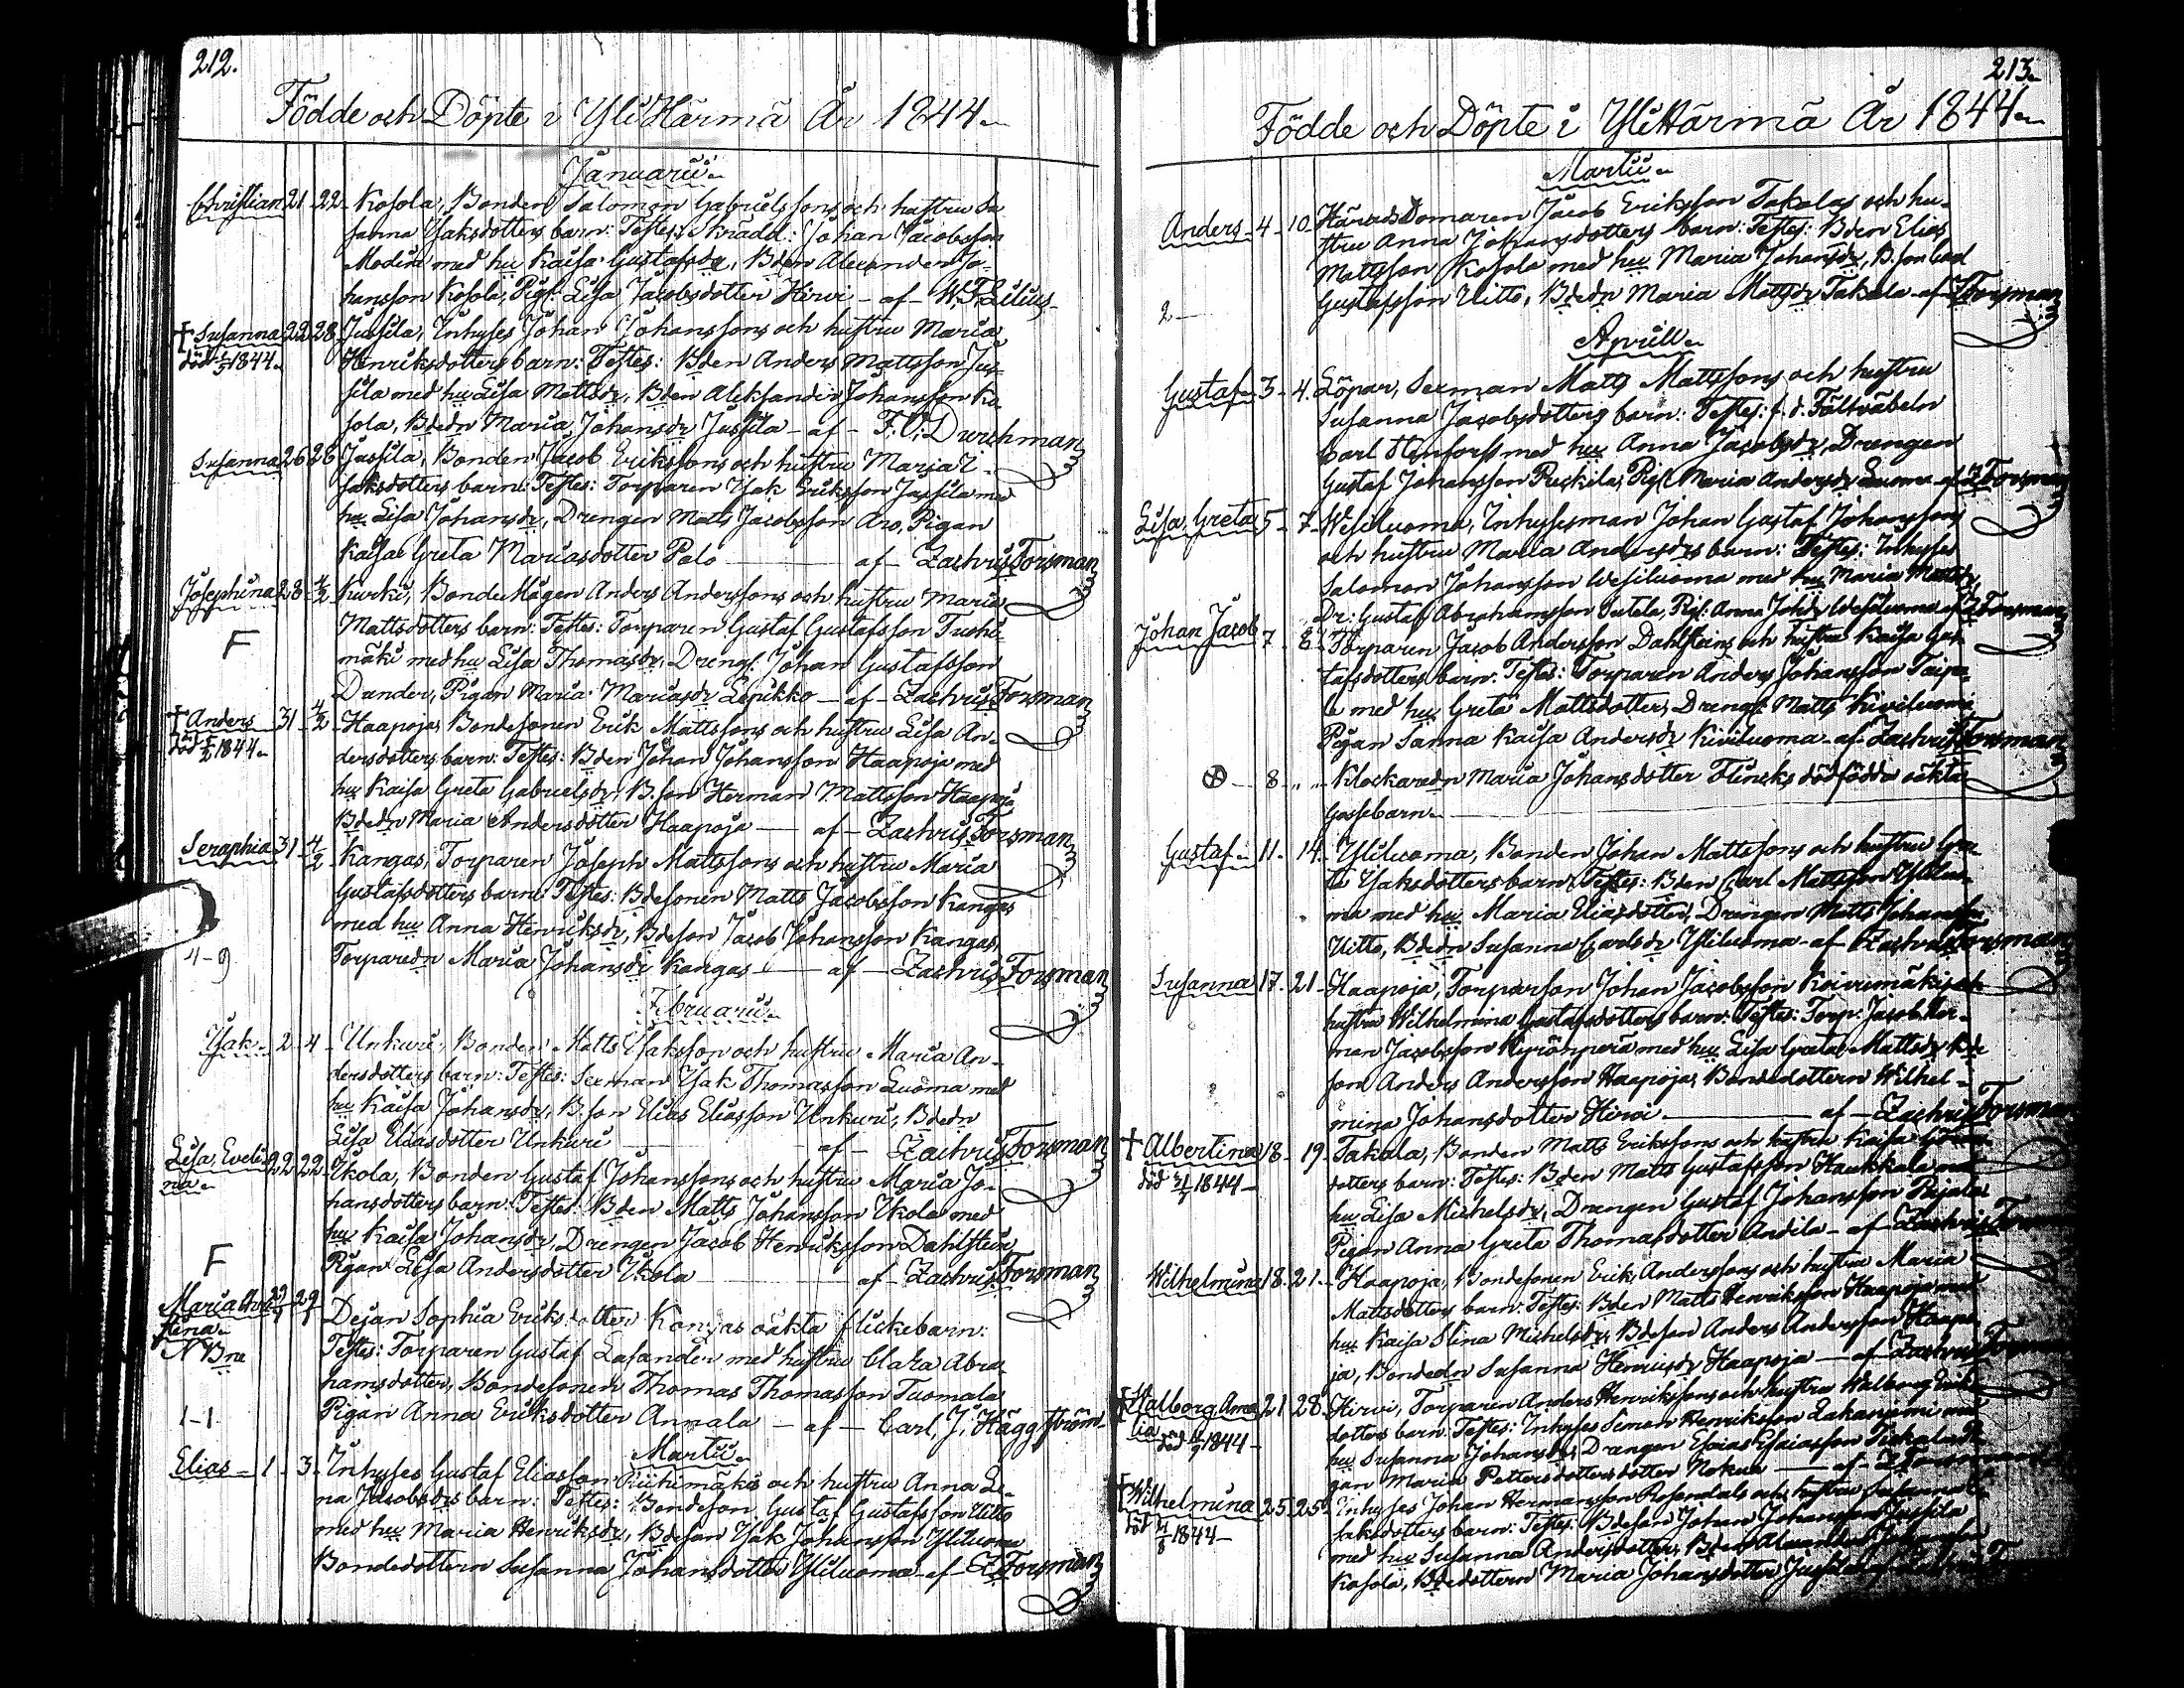 212.
Födde och Döpte i YliHärmä År 1844
Januarii
Christian 21 22 Kosola, Bonden Salomon Gabrielssons och hustru Su
sanna Isaksdotters barn: Testes: Skrädd: Johan Jacobsson
Modén med hu Kaisa Gustafsdr, Bden Alexander Jo-
hansson Kosola, Pig: Lisa Jacobsdotter Hirvi - af - W. F. Lilius
† Susanna 22 28 Jussila, Inhyses Johan Johanssons och hustru Maria
död 1844 Henriksdotters barn: Testes: Bden Anders Mattsson Jus-
sila med hu Lisa Mattsdr, Bden Aleksander Johansson Ko-
sola, Bdedn Maria Johansdr Jussila - af - F. O. Durchman
Susanna 26 28 Jussila, Bonden Jacob Erikssons och hustru Maria I-
saksdotters barn: Testes: Torparen Isak Eriksson Jussila med
hu Lisa Johansdr, Drengen Matts Jacobsson Aro, Pigan
Kaisa Greta Mariasdotter Palo af - Zachris Forsman
Josephina 28 4/2 Kurki, Bonde Mågen Anders Anderssons och hustru Maria
F Mattsdotters barn: Testes: Torparen Gustaf Gustafsson
mäki med hu Lisa Thomasdr, Drengs: Johan Gustafsson
Dander, Pigan Maria Mariasdr Lepikko - af - Zachris Forsman
† Anders 31 4/2 Haapoja, Bondesonen Erik Mattssons och hustru Lisa An-
död 1844 dersdotters barn: Testes: Bden Johan Johansson Haapoja med
hu Kaisa Greta Gabrielsdr, B. son Herman Mattsson Haapoja,
Bdedn Maria Andersdotter Haapoja - af - Zachris Forsman
Seraphia 31 4/2 Kangas, Torparen Joseph Mattssons och hustru Maria
Gustafsdotters barn: Testes: Bdesonen Matts Jacobsson Kangas
med hu Anna Henriksdr, Bdeson Jacob Johansson Kangas,
4-9 Torparedn Maria Johansdr Kangas - af - Zachris Forsman
Februarii
Isak 2 4 Unkuri, Bonden Matts Isaksson och hustru Maria An-
dersdotters barn: Testes: Isak Thomasson Luoma med
hu Kaisa Johansdr, B. son Elias Eliasson Unkuri, Bdedn
Lisa Eliasdotter Unkuri af - Zachris Forsman
Lisa Eveli- 22 22 Ikola, Bonden Gustaf Johanssons och hustru Maria Jo-
na hansdotters barn: Testes: Bden Matts Johansson Ikola med
hu Kaisa Johansdr, Drengen Jacob Henriksson Dahlsten
F Pigan Lisa Andersdotter Ikola af - Zachris Forsman
Maria Chri- Dejan Sophia Eriksdotter Kangas oäkta flickebarn:
stina Testes: Torparen Gustaf Lasander med hustru Clara Abra-
NBne hamsdotter, Bondesonen Thomas Thomasson Tuomala
1-1 Pigan Anna Eriksdotter Annala - af - Carl J. Häggström
Martii
Elias 1 3 Inhyses Gustaf Eliasson Riihimäkis och hustru Anna Le-
na Jacobsdrs barn: Testes: Bondeson Gustaf Gustafsson Uitto
med hu Maria Henriksdr, Bdeson Isak Johansson Yliluoma
Bondedottern Susanna Johansdotter Yliluoma - af - Z Forsman
213
Födde och Döpte i YliHärmä År 1844
Martii
Anders 4 10 Härads Domaren Jacob Eriksson Takalas och hu-
stru Anna Johansdotters barn: Testes: Bden Elias
Mattsson Kosola med hu Maria Johansdr, B. son Carl
2 Gustafsson Uitto, Bdedn Maria Mattsdr Takala - af Forsman
Aprill
Gustaf 3 4 Löpar, Matts Mattssons och hustru
Susanna Jacobsdotters barn: Testes: f. d. Fältväbeln
Carl med hu Anna Jacobsdr, Drengen
Gustaf Johansson Puskila, Pig: Maria Andersdr Luoma af Z Forsman
Lisa Greta 5 7 Wesiluoma, Inhysesman Johan Gustaf Johanssons
och hustru Maria Andersdrs barn: Testes: Inhyses
Salomon Johansson Wesiluoma med hu Maria Mattsdr,
Dr: Gustaf Abrahamsson Sutela, Pig: Anna Wesiluoma af Z Forsman
Johan Jacob 7 8 Torparen Jacob Andersson Dahlstens och hustru Kaisa Gus-
tafsdotters barn: Testes: Torparen Anders Johansson Taipa-
le med hu Greta Mattsdotter, Drengs: Matts Kiviluoma
Pigan Sanna Kaisa Andersdr Kiviluoma - af Zachris Forsman
8 Klockaredn Maria Johansdotter Flincks dödfödda oäkta
gossebarn
Gustaf 11 14 Yliluoma, Bonden Johan Mattssons och hustru Gre-
ta Isaksdotters barn: Testes: Bden Carl Mattsson Yliluo-
ma med hu Maria Eliasdotter, Drengen Matts Johansson
Uitto, Bdedn Susanna Carlsdr Yliluoma - af Zachris Forsman
Susanna 17 21 Haapoja, Torparson Johan Jacobsson Koivumäkis och
hustru Wilhelmina Gustafsdotters barn: Testes: Torp: Jacob Her-
man Jacobsson med hu Lisa Greta Mattsdr, Bde
son Anders Andersson Haapoja, Bondedottern Wilhel-
mina Johansdotter Hirvi af - Zachris Forsman
† Albertina 18 19 Takala, Bonden Matts Erikssons och hustru Kaisa
död 1844 dotters barn: Testes: Bden Matts Gustafsson med
hu Lisa Michelsdr, Drengen Gustaf Johansson
Pigan Anna Greta Thomasdotter Andila - af Zachris
Wilhelmina 18 21 Haapoja, Bondesonen Erik Anderssons och hustru Maria
Mattsdotters barn: Testes: Bden Matts Henriksson Haapoja med
hu Kaisa Stina Michelsdr, Bdeson Anders Andersson Haapo-
ja, Bondedn Susanna Henriksdr Haapoja - af Zachris
† Walborg Ama- 21 28 Hirvi, Torparen Anders Henrikssons och hustru Walborg Eriks-
lia dotters barn: Testes: Inhyses Simon Henriksson Lakaniemi med
död 1844 hu Susanna Johansdr, Drengen Esaias Esaiasson
gan Maria Pettersdotter - af - Z Forsman
† Wilhelmina 25 25 Inhyses Johan Hermansson Rosendals och hustru Susanna I-
död 1844 saksdotters barn: Testes: Bdeson Johan Johansson Jussila
med hu Susanna Andersdotter, Bden Alexander Johansson
Kosola, Bdedottern Maria Johansdotter Jussila